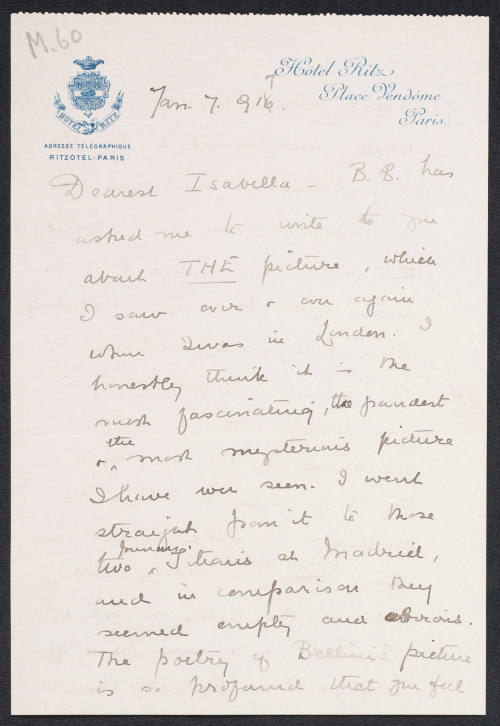 M.60
Hôtel Ritz
Place Vendôme
Paris.
HOTEL RITZ
ADRESSE TÉLÉGRAPHIQUE
RITZOTEL-PARIS
Jan. 7. 916.
Dearest Isabella - B.B. has
asked me to write to you
about THE picture, which
I saw over & over again
when I was in London. I
honestly think it is the
most fascinating, the grandest
& the most mysterious picture
I have ever seen. I went
straight from it to those
two famous Titians at Madrid,
and in comparison they
seemed empty and obvious.
The poetry of Bellini's picture
is so profound that you feel